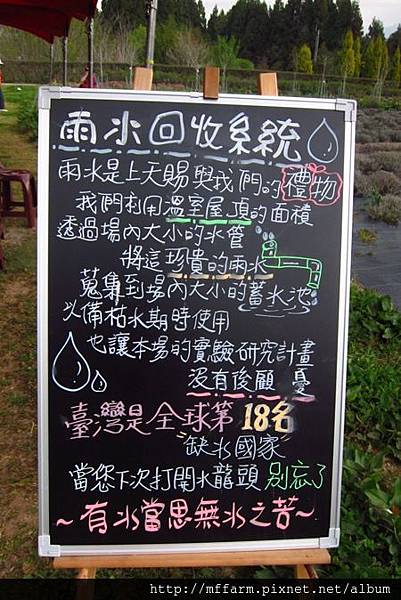 雨水回收系統
雨水是上天賜與我們的禮物
我們利用溫室屋頂的面積
透過場內大小的水管
將這珍貴的雨水
蒐集到場內大小的蓄水池
以備枯水期時使用
也讓本場的實驗研究計畫
沒有後顧憂
臺灣是全球第18名
缺水國家
當您下次打開水龍頭別忘了
~有水當思無水之苦~
http://mffarm.pixnet.net/album